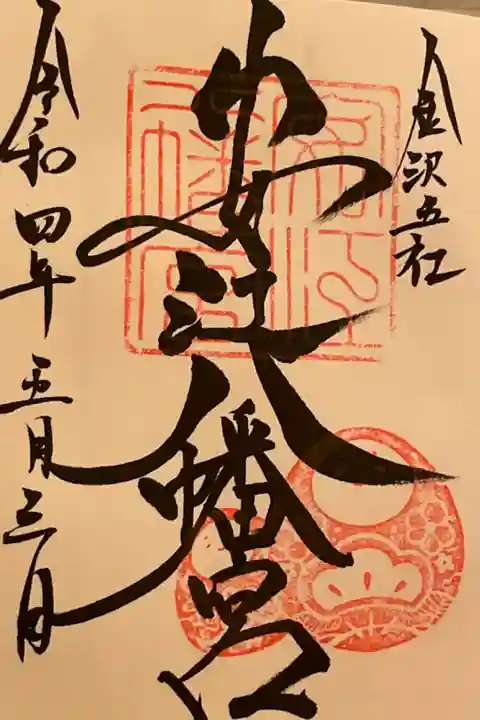 金沢五社
安江八幡宮
令和四年五月三日